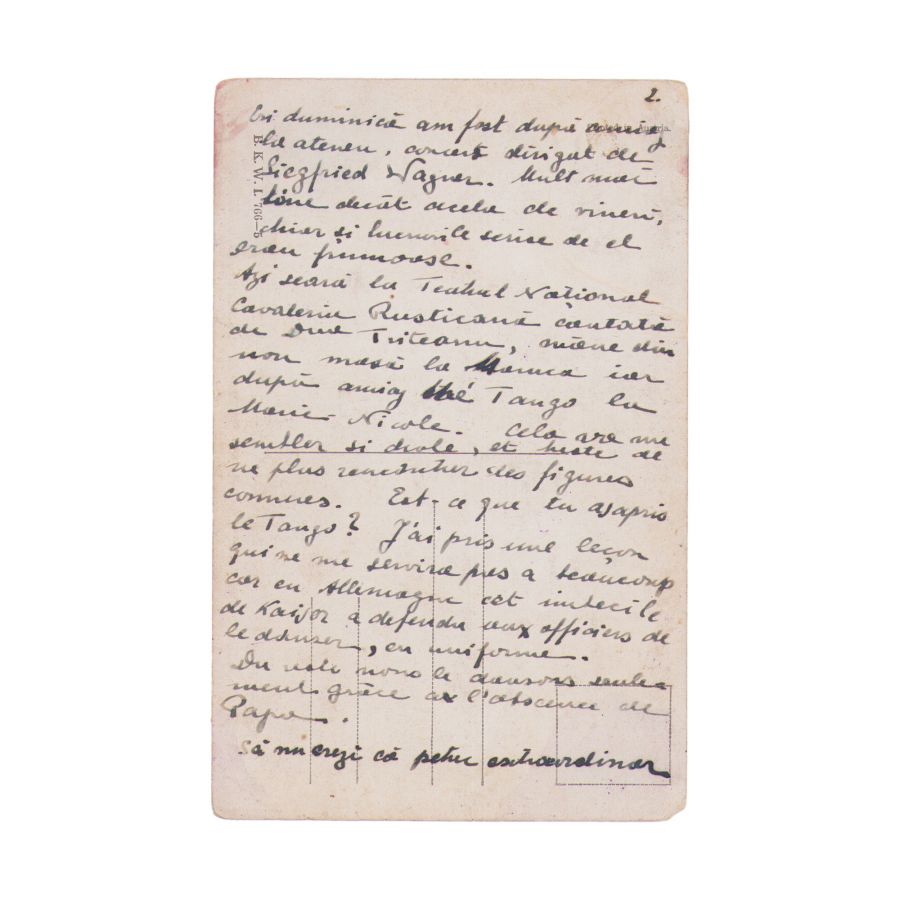 2.
Eri duminică am fost după amiaz
la ateneu, concert dirigat de
Siegfried Wagner. Mult mai
bine decât acela de vineri,
chiar si lucrurile scrise de el
erau frumoase.
Azi seară la Teatrul Național
Cavaleria Rusticană cântată
de Dna Triteanu, mâne din
nou masă la Maruca iar
după amiaz thé Tango la
Marie-Nicole. Cela va me
sembler si drole, et triste de
ne plus rencontrer des figures
connues. Est-ce que tu as apris
le Tango? J'ai pris une leçon
qui ne me servira pas a beaucoup
car en Allemagne cet imbecile
de Kaiser a defendu aux officiers de
le danser, en uniforme.
Du reste nous le dansons seule-
ment grâce a l'absence de
Papa.
să nu crezi că petrec extraordinar
E. K. W. I. 766-5